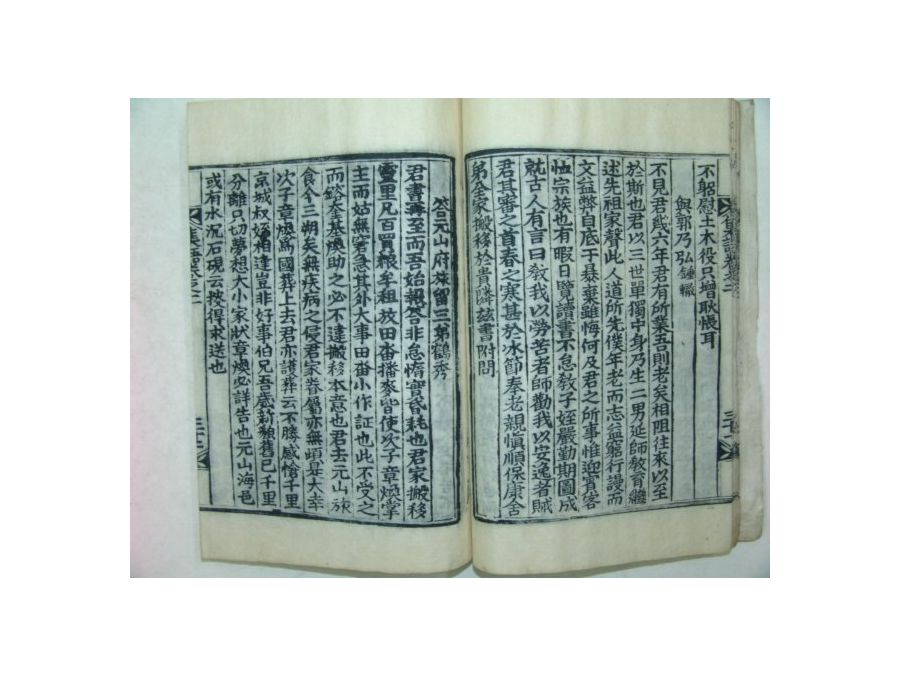 不躬慰土木役只增耿悵耳
與郭乃弘鍾轍
不見君幾六年君有所業吾則老矣相阻往來以至
於斯也君以三世單獨中身乃生二男延師敎育繼
述先祖家聲此人道所先僕年老而志益窮行謾而
文益弊自底于暴棄雖悔何及君之所事惟迎賓客
恤宗族也有暇日覽讀書不怠敎子姪嚴勤期圖成
就古人有言曰敎我以勞苦者師勸我以安逸者賊
君其審之首春之寒甚於冰節奉老親愼順保康舍
弟全家搬移於貴隣玆書附問
答元山府族留三弟鶴秀
君書再至而吾始報答非怠惰實昏耗也君家搬移
靈里凡百買粮牟租放田畓播麥皆使次子章煥掌
主而姑無窘急其外大事田畓小作証也此不受之
而鎔奎基煥助之必不違搬移本意也君去元山旅
食今三朔矣無疾病之侵君家眷屬亦無頉是大幸
次子章煥爲國葬上去君亦護葬云不勝感愴千里
京城叔姪相逢豈非好事伯兄吾歲薪貌舊已千里
分離只切夢想大小家狀章煥必詳告也元山海邑
或有水沉石硯云按得求送也